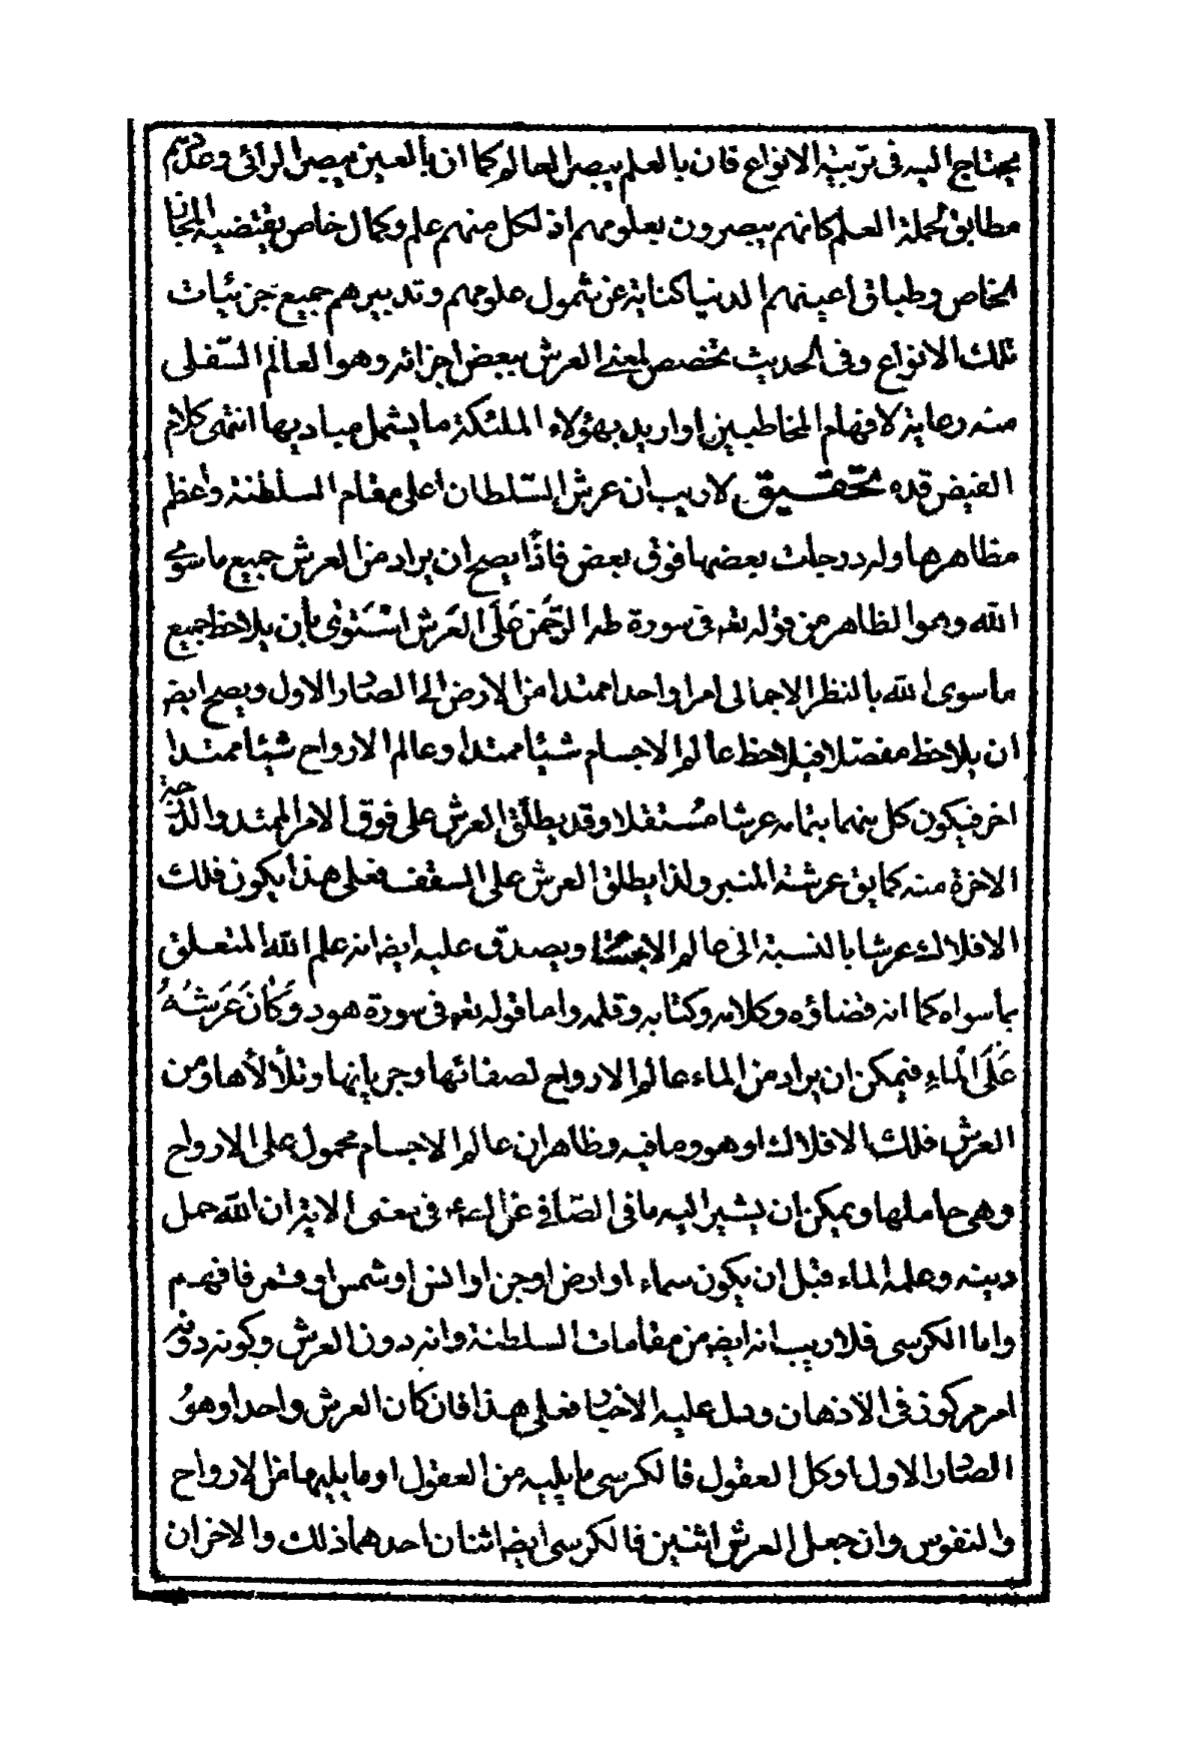 يحتاج اليه فى تربيته الانواع فان بالعلم يبصر العالم كما ان بالعين يبصر الرائى وعلم
مطابق لحملة العلم كانهم يبصرون بعلومهم اذ لكل منهم علم وكمال خاص يقتضيه
الخاص وطباق اعينهم الدنيا كناية عن شمول علومهم وتدبيرهم جميع جزئيات
تلك الانواع وفى الحديث تخصص لمعنى العرش ببعض اجزائه وهو العالم السّفلى
منه رعاية لافهام المخاطبين او اريد بهؤلاء الملئكة ما يشمل مباديها انتهى كلام
الفيض قده تحقيق لا ريب ان عرش السّلطان اعلى مقام السلطنة واعظم
مظاهرها وله درجات بعضها فوق بعض فاذًا يصح ان يراد من العرش جميع ما سوى
الله وهو الظاهر من قوله تعه فى سورة طه الرَّحْمنُ عَلَى العَرْشِ اسْتَوىٰ بان يلاحظ جميع
ما سوى الله بالنظر الاجمالى امرا واحدا ممتدا من الارض الى الصادر الاول ويصح ايض
ان يلاحظ مفصّلا فيلاحظ عالم الاجسام شيئا ممتدا وعالم الارواح شيئا ممتدا
اخر فيكون كل منهما بتمامه عرشا مستقلا وقد يطلق العرش على فوق الامر الممتد والدرجة
الاخرة منه كما يق عرشة المنبر ولذا يطلق العرش على السقف فعلى هذا يكون فلك
الافلاك عرشا بالنسبة الى عالم الاجسام ويصدق عليه ايضه انه علم الله المتعلق
بما سواه كما انه قضاؤه وكلامه وكتابه وقلمه واما قوله تعه فى سورة هود وَكانَ عَرْشُهُ
عَلَى الْماءِ فيمكن ان يراد من الماء عالم الارواح لصفائها وجريانها وتلألأها ومن
العرش فلك الافلاك او هو وما فيه وظاهر ان عالم الاجسام محمول على الارواح
وهى حاملها ويمكن ان يشير اليه ما فى الصّافى عن فى معنى الاية ان الله حمل
دينه وعلمه الماء قبل ان يكون سماء او ارض او جن او انس او شمس او قمر فافهم
واما الكرسى فلا ريب انه ايضه من مقامات السلطنة وانه دون العرش وكونه دونه
امر مركوز فى الاذهان ودل عليه الاخبار فعلى هذا فان كان العرش واحدا وهو
الصادر الاول او كل العقول فالكرسى ما يليه من العقول او ما يليها من الارواح
والنفوس وان جعل العرش اثنين فالكرسى ايضه اثنان احدهما ذلك والاخر ان